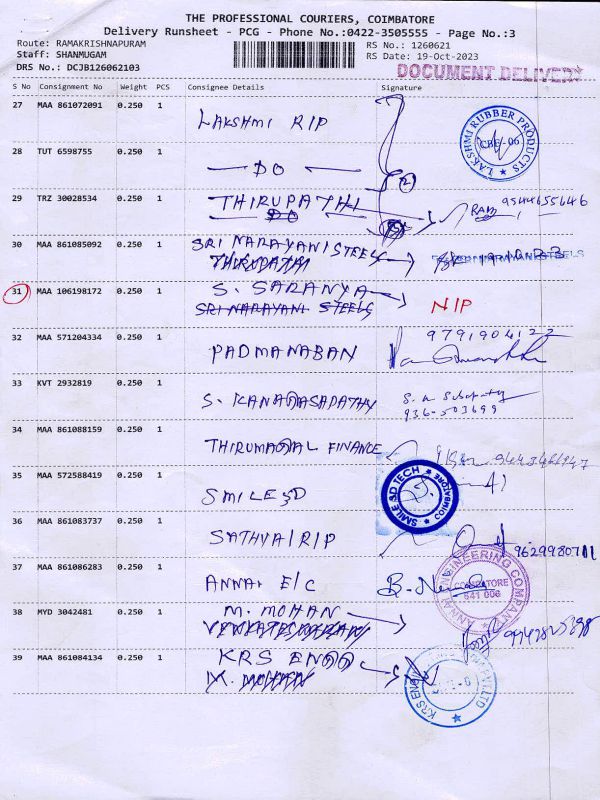 THE PROFESSIONAL COURIERS, COIMBATORE
Delivery Runsheet - PCG - Phone No.:0422-3505555 - Page No.:3
Route: RAMAKRISHNAPURAM
RS No.: 1260621
Staff: SHANMUGAM
RS Date: 19-Oct-2023
DRS No.: DCJB126062103
DOCUMENT DELIVERY
S No Consignment No Weight PCS Consignee Details Signature
27 MAA 861072091 0.250 1 LAKSHMI RIP
LAKSHMI RUBBER PRODUCTS CBE-06
28 TUT 6598755 0.250 1 DO
(2)
29 TRZ 30028534 0.250 1 THIRUPATHI RAM 9544655646
DO
30 MAA 861085092 0.250 1 SRI NARAYANI STEELS
THIRUPATHI
31 MAA 106198172 0.250 1 S. SARANYA NIP
SRI NARAYANI STEELS
32 MAA 571204334 0.250 1 PADMANABAN
33 KVT 2932819 0.250 1 S. KANAGASAPATHY
936-503699
34 MAA 861088159 0.250 1 THIRUMAGAL FINANCE
35 MAA 572588419 0.250 1 SMILE 3D
SMILE 3D TECH COIMBATORE
36 MAA 861083737 0.250 1 SATHYA RIP 9629980711
37 MAA 861086283 0.250 1 ANNAI E/C
ANNAI ENGINEERING COMPANY COIMBATORE 641 006
38 MYD 3042481 0.250 1 M. MOHAN
VENKATESWARAN
39 MAA 861084134 0.250 1 KRS ENGG
M. MOHAN